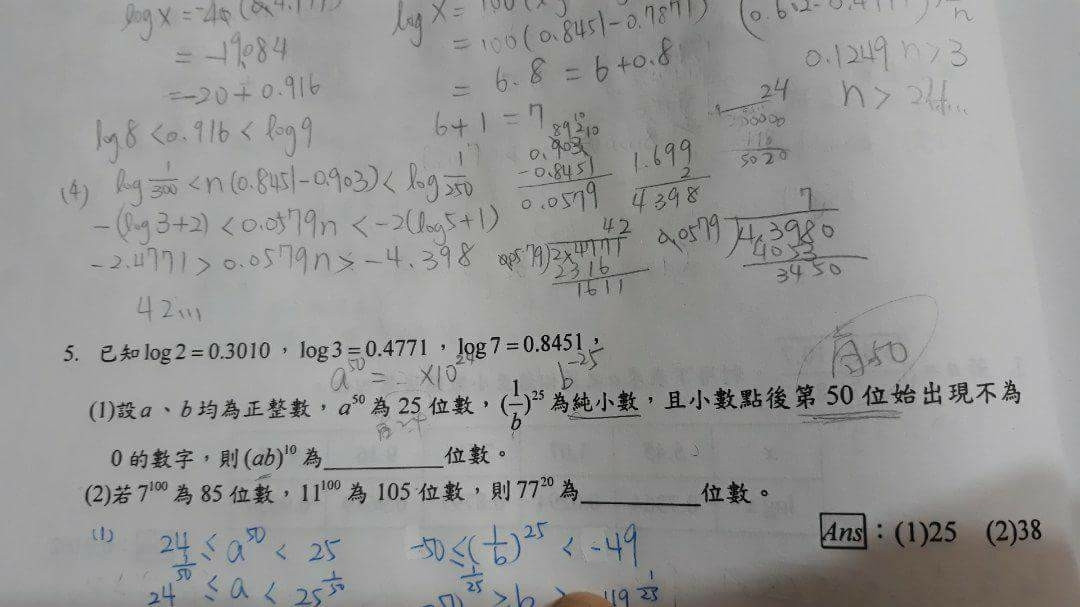 log X =
= -19.084
= -20 + 0.916
log 8 < 0.916 < log 9
log X =
= 100 (0.8451 - 0.7871)
= 6.8 = 6 + 0.8
6+1 = 7
0.1249 n > 3
n >
24
5020
(4) log 1/300 < n (0.8451 - 0.903) < log 1/250
-(log 3 + 2) < 0.0579n < -2(log 5 + 1)
-2.4771 > 0.0579n > -4.398
42...
0.903
-0.8451
0.0579
1.699
2
4398
42
2316
1611
7
0.0579 4.3980
4053
3450
5. 已知 log 2 = 0.3010,log 3 = 0.4771,log 7 = 0.8451,
a^50 = ×10^24
b^-25
首50
(1)設 a、b 均為正整數,a^50 為 25 位數,(1/b)^25 為純小數,且小數點後第 50 位始出現不為
0 的數字,則 (ab)^10 為________位數。
(2)若 7^100 為 85 位數,11^100 為 105 位數,則 77^20 為________位數。
Ans:(1)25 (2)38
(1) 24 ≤ a^50 < 25
-50 ≤ (1/b)^25 < -49
24^1/50 ≤ a < 25^1/50